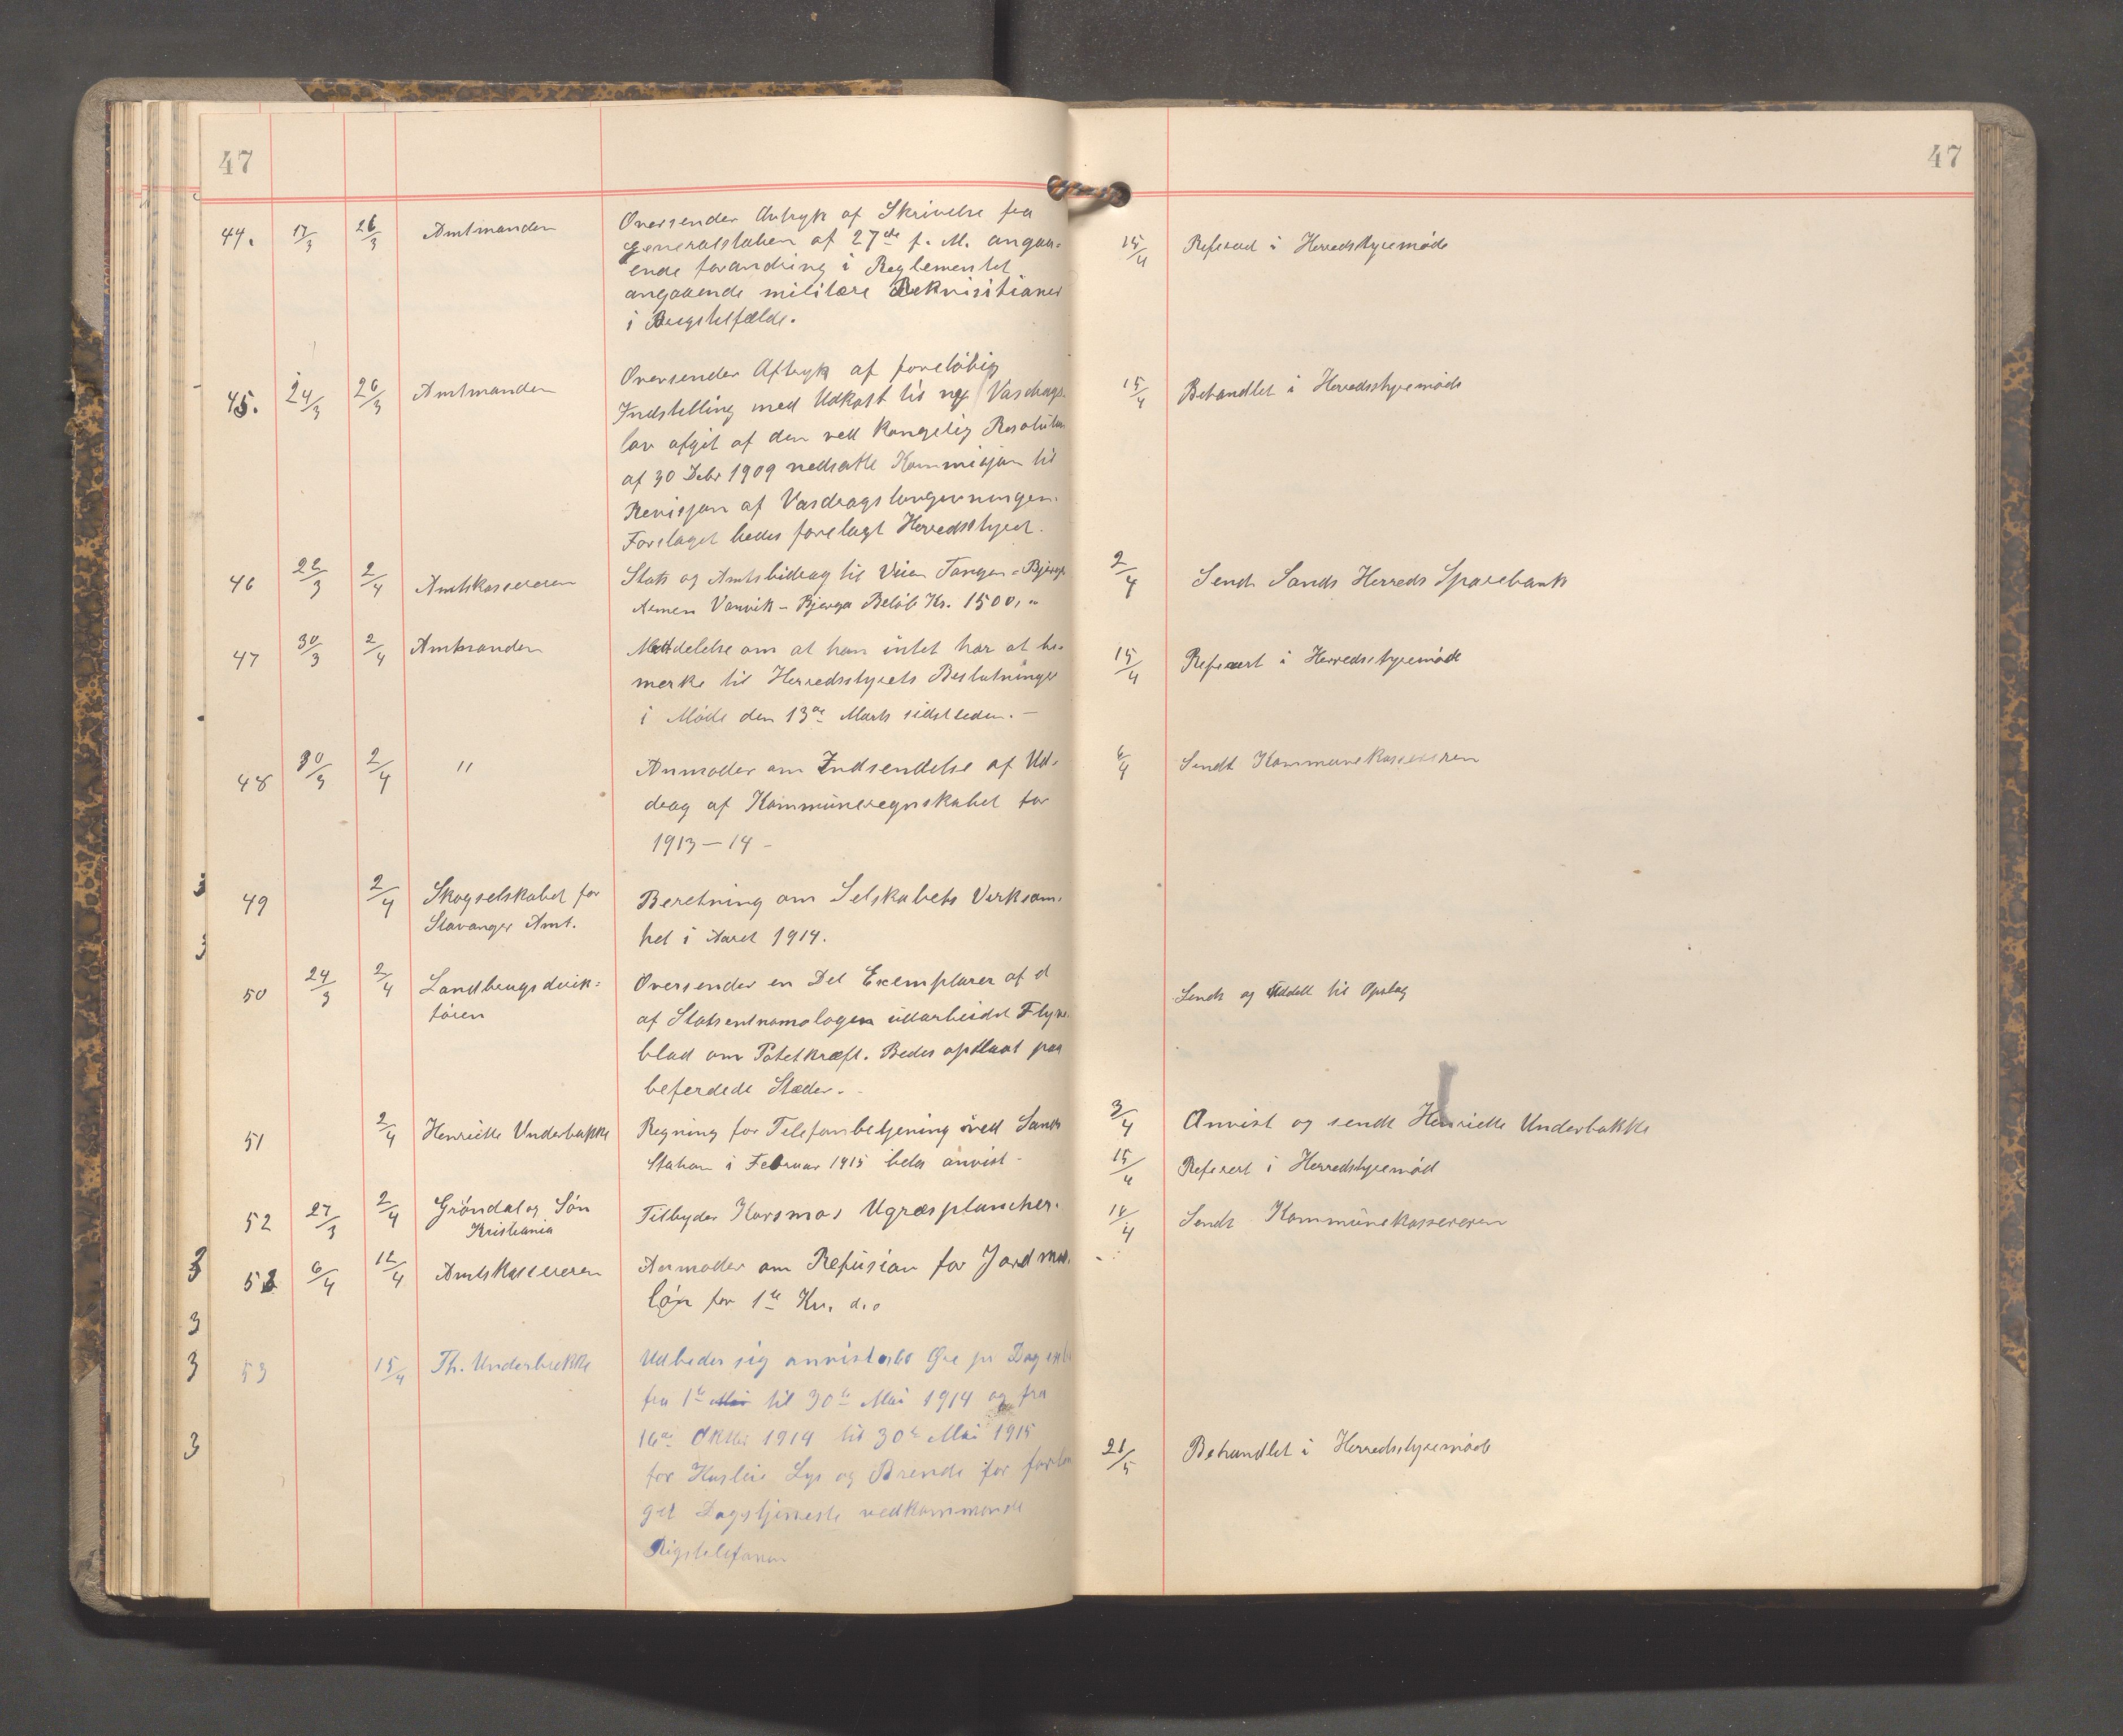 47
47
44. 17/3 26/3 Amtmanden Oversender Avtryk af Skrivelse fra
Generalstaben af 27de f. M. angaa-
ende forandring i Reglementet
angaaende militære Rekvisitioner
i
15/4 Referert i Herredsstyremøde
45. 24/3 26/3 Amtmanden Oversender Aftryk af foreløbig
Indstilling med Udkast til ny Vasdrags-
lov afgit af den ved Kongelig Resolution
af 30 Debr 1909 nedsatte Kommisjon til
Revisjon af Vasdragslovgivningen.
Forslaget bedes forelagt Herredsstyret.
15/4 Behandlet i Herredsstyremøde
46 22/3 2/4 Amtskassereren Stats og Amtsbidrag til Veien Tangen - Bjerga
Armen Vanvik - Bjerga Beløb Kr. 1500,"
2/4 Sendt Sands Herreds Sparebank
47 30/3 2/4 Amtmanden Meddelelse om at han intet har at be-
merke til Herredsstyrets Beslutninger
i Møde den 13de Marts sidstleden. -
15/4 Referert i Herredsstyremøde
48 30/3 2/4 " Anmoder om Indsendelse af Ud-
drag af Kommuneregnskabet for
1913 - 14 -
6/4 Sendt Kommunekassereren
49 2/4 Skogselskabet for Beretning om Selskabets Virksom-
Stavanger Amt. het i Aaret 1914.
50 24/3 2/4 Landbrugsdirek- Oversender en Del Exemplarer af et
tøren af Statsentomologen utarbeidet Flyve-
blad om Potetkræft. Bedes opslaat paa
beferdede Stæder. -
Sendt og uddelt til Opslag
51 2/4 Henriette Underbakke Regning for Telefonbetjening ved Sands
Station i Februar 1915 bedes anvist -
3/4 Anvist og sendt Henriette Underbakke
15/4 Referert i Herredsstyremød
52 27/3 2/4 Grøndal og Søn Tilbyder Korsmos Ugræsplancher.
Kristiania
16/4 Sendt Kommunekassereren
52 6/4 12/4 Amtskassereren Anmoder om Refusion for Jordmor-
løn for 1ste Kv. d.o
53 15/4 Th. Underbakke Udbeder sig anvist Øre pr Dag
fra 1ste til 30te Mai 1914 og fra
16de Oktbr 1914 til 30te Mai 1915
for Husleie Lys og Brende for forlæn
get Dagstjeneste vedkommende
Rigstelefonen
21/5 Behandlet i Herredsstyremøde
3
3
3
3
3
3